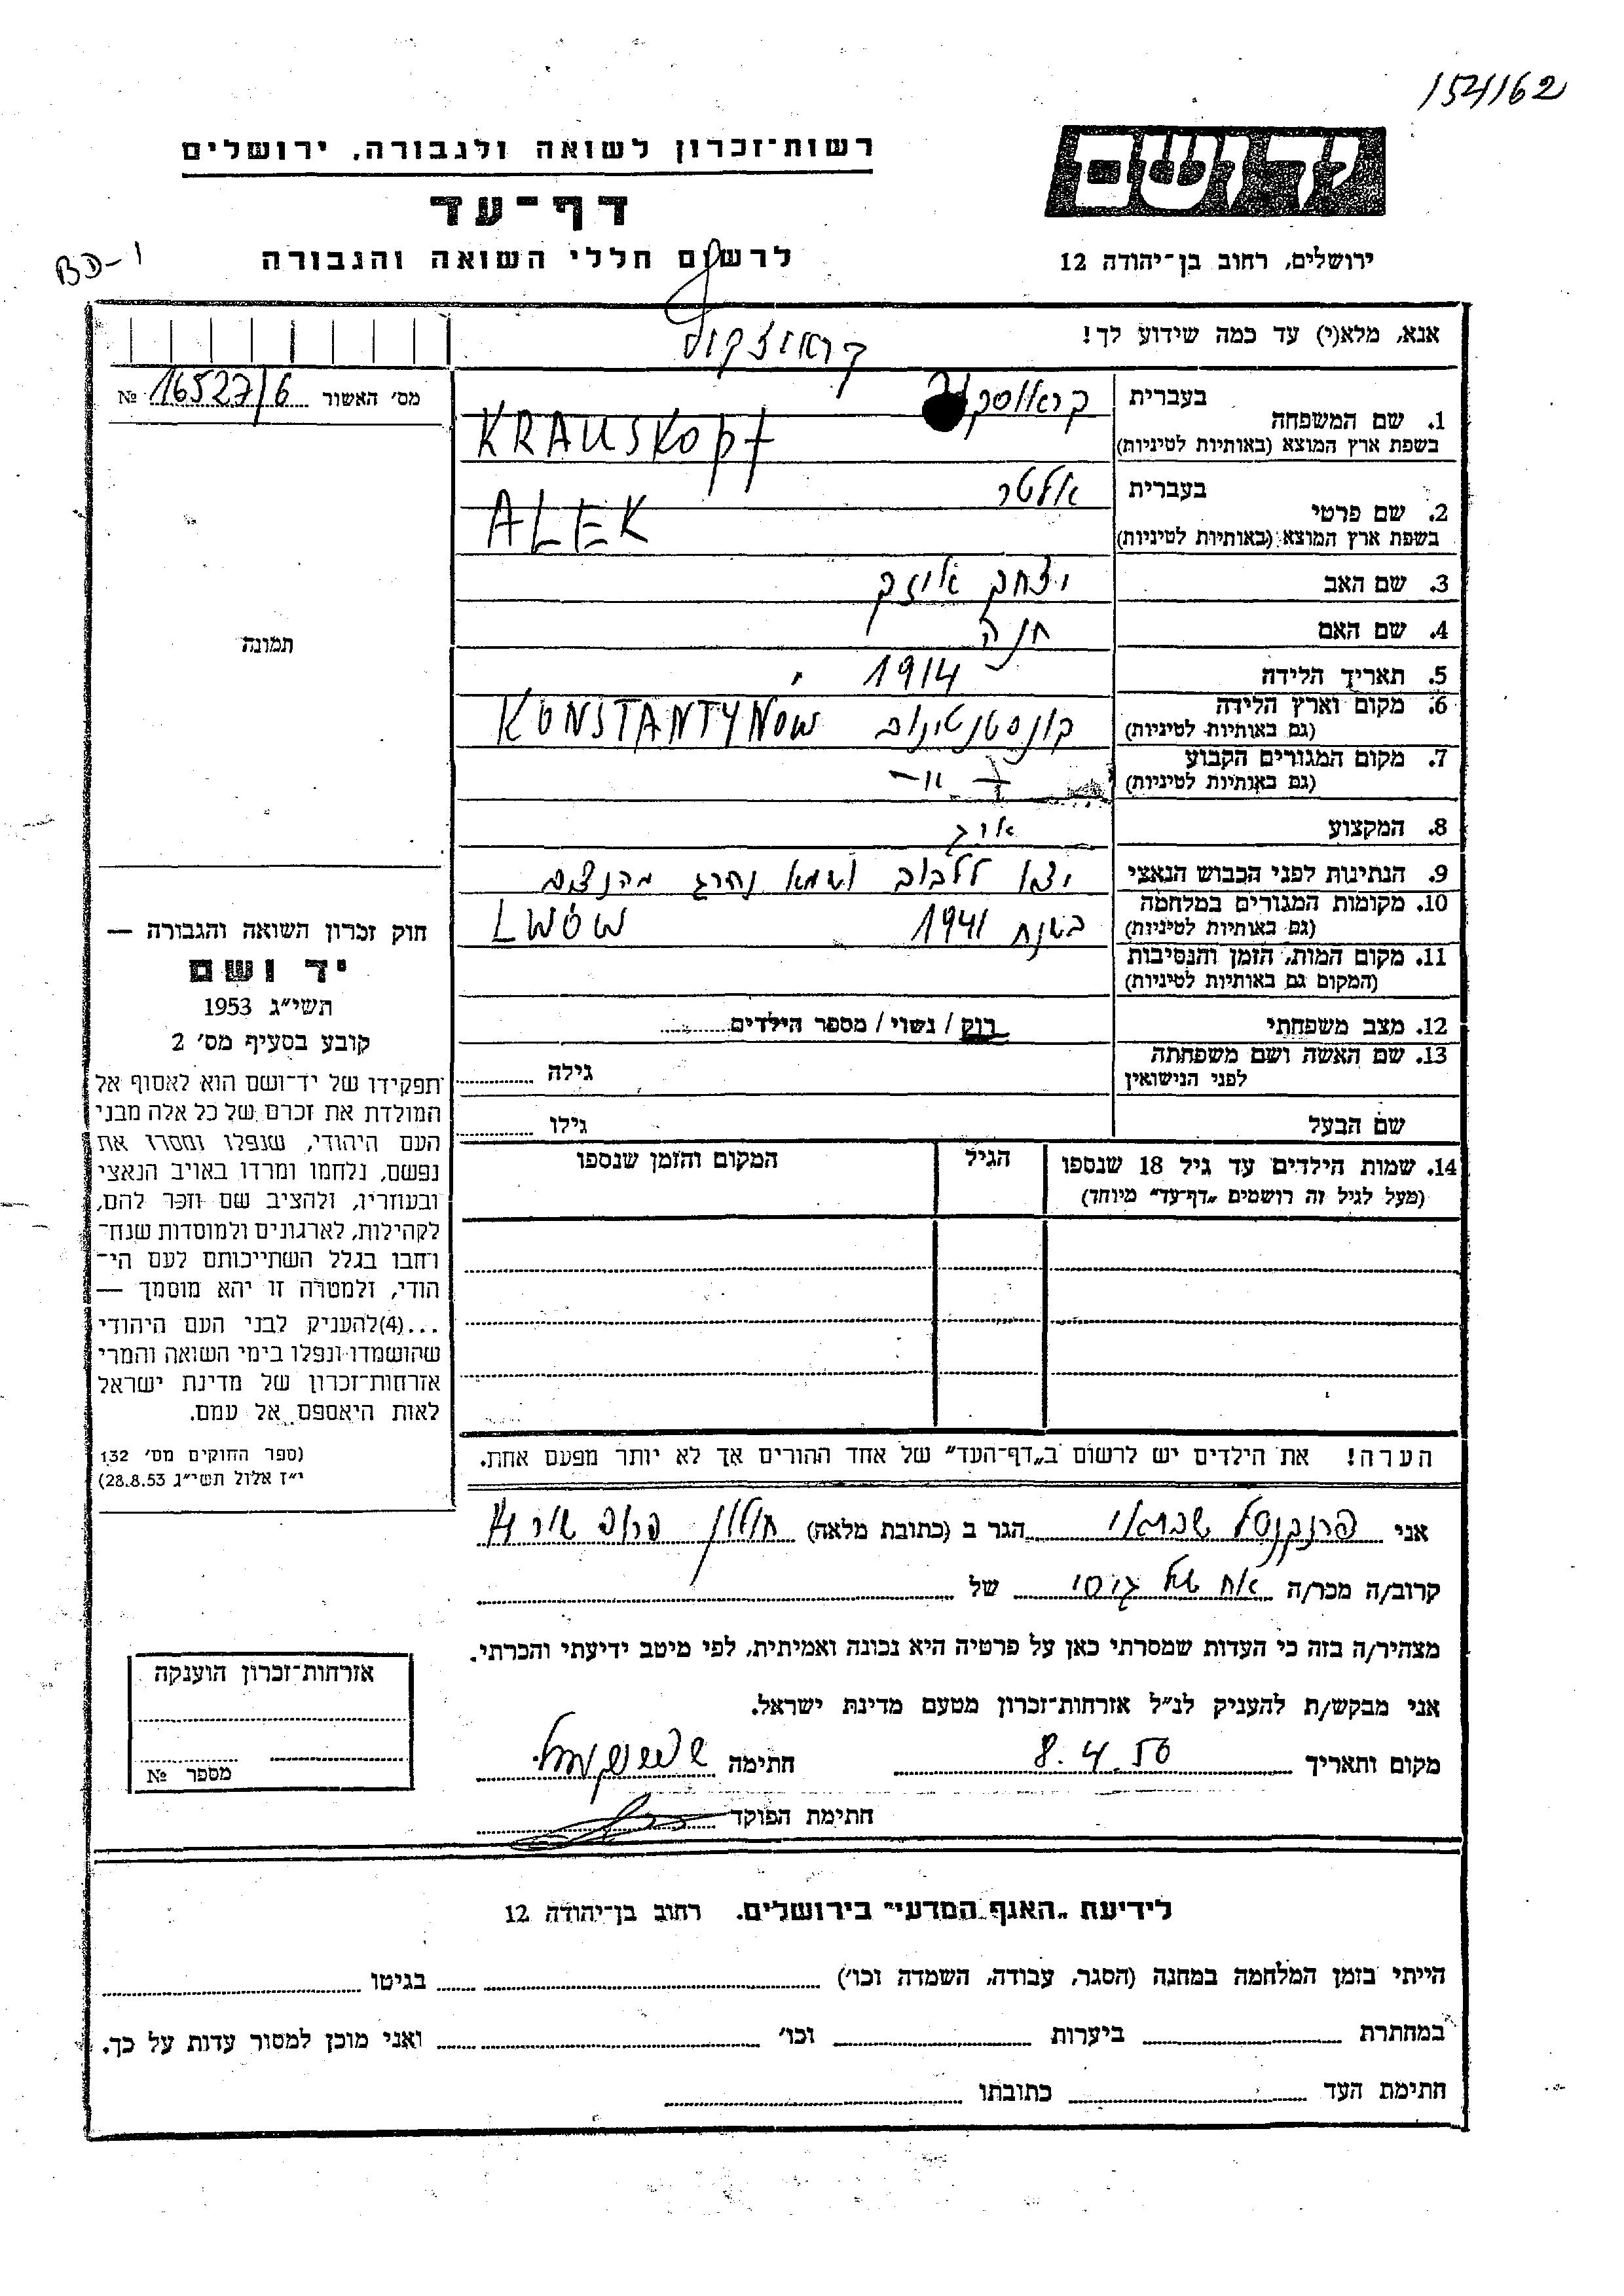 154162
רשות־זכרון לשואה ולגבורה, ירושלים
יד ושם
דף־עד
ירושלים, רחוב בן־יהודה 12
לרשום חללי השואה והגבורה
BD-1
אנא, מלא(י) עד כמה שידוע לך!
מס׳ האשור 16527/6 №
1. שם המשפחה
בעברית
בשפת ארץ המוצא (באותיות לטיניות) KRAUSKOPF
2. שם פרטי
בעברית אלטר
בשפת ארץ המוצא (באותיות לטיניות) ALEK
3. שם האב יצחק אייזק
4. שם האם חנה
5. תאריך הלידה 1914
6. מקום וארץ הלידה קונסטנטינוב KONSTANTYNÓW
(גם באותיות לטיניות)
7. מקום המגורים הקבוע — " —
(גם באותיות לטיניות)
8. המקצוע אורג
9. הנתינות לפני הכבוש הנאצי יצא ללבוב ושמא נהרג מהנצים
10. מקומות המגורים במלחמה בשנת 1941 LWÓW
(גם באותיות לטיניות)
11. מקום המות, הזמן והנסיבות
(המקום גם באותיות לטיניות)
12. מצב משפחתי רוק / נשוי / מספר הילדים
13. שם האשה ושם משפחתה
לפני הנישואין גילה
שם הבעל גילו
14. שמות הילדים עד גיל 18 שנספו הגיל המקום והזמן שנספו
(מעל לגיל זה רושמים „דף־עד״ מיוחד)
הערה! את הילדים יש לרשום ב„דף־העד״ של אחד ההורים אך לא יותר מפעם אחת.
תמונה
חוק זכרון השואה והגבורה —
יד ושם
תשי״ג 1953
קובע בסעיף מס׳ 2
תפקידו של יד־ושם הוא לאסוף אל
המולדת את זכרם של כל אלה מבני
העם היהודי, שנפלו ומסרו את
נפשם, נלחמו ומרדו באויב הנאצי
ובעוזריו, ולהציב שם וזכר להם,
לקהילות, לארגונים ולמוסדות שנח־
רחבו בגלל השתייכותם לעם הי־
הודי, ולמטרה זו יהא מוסמך —
...(4)להעניק לבני העם היהודי
שהושמדו ונפלו בימי השואה והמרי
אזרחות־זכרון של מדינת ישראל
לאות היאספם אל עמם.
(ספר החוקים מס׳ 132
י״ז אלול תשי״ג 28.8.53)
אני פרנקנטל הגר ב (כתובת מלאה) חולון
קרוב/ה מכר/ה אח של גיסי של
מצהיר/ה בזה כי העדות שמסרתי כאן על פרטיה היא נכונה ואמיתית, לפי מיטב ידיעתי והכרתי.
אני מבקש/ת להעניק לנ״ל אזרחות־זכרון מטעם מדינת ישראל.
מקום ותאריך 8.4.56 חתימה
חתימת הפוקד
אזרחות־זכרון הוענקה
מספר №
לידיעת „האגף המדעי״ בירושלים, רחוב בן־יהודה 12
הייתי בזמן המלחמה במחנה (הסגר, עבודה, השמדה וכו׳) בגיטו
במחתרת ביערות וכו׳ ואני מוכן למסור עדות על כך.
חתימת העד כתובתו